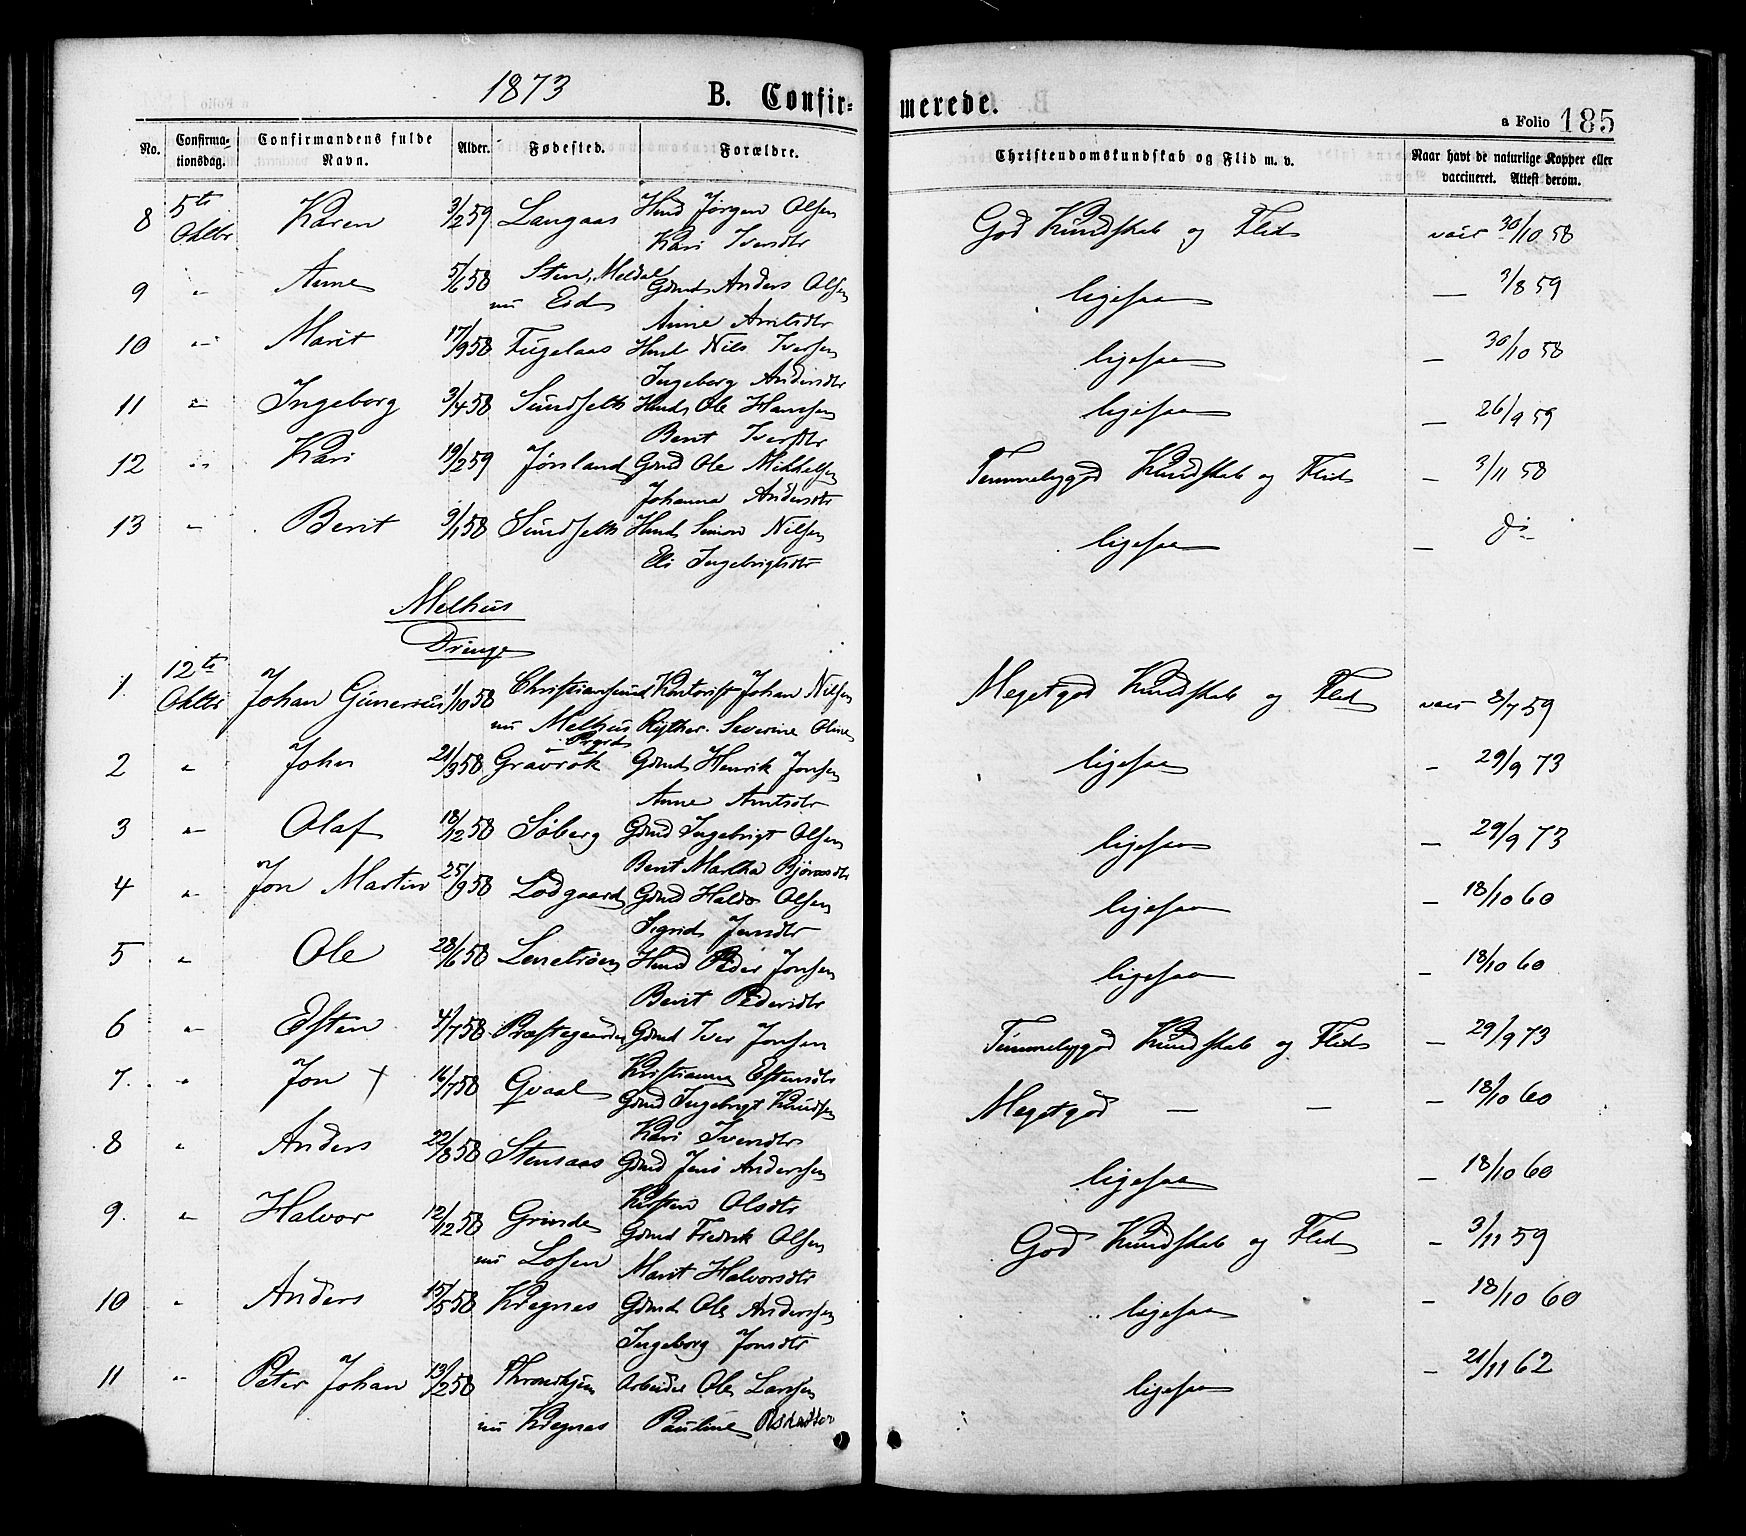 1873 B. Confir= merede. a Folio 185
No. Confirma-tionsdag. Confirmandens fulde Navn. Alder. Fødested. Forældre. Christendomskundskab og Flid m. v. Naar havt de naturlige Kopper eller vaccineret. Attest derom.
8 5te Oktbr Karen 3/2 59 Langaas Hmd Jørgen Olsen God Kundskab og Flid vacc 30/10 58
Kari Iversdtr
9 " Anne 5/6 58 Sten, Meldal Gdmd Anders Olsen ligesaa — 3/8 59
nu Eid Anne Arntsdtr
10 " Marit 17/9 58 Fuglaas Hmd Nils Iversen ligesaa — 30/10 58
Ingeborg Andersdtr
11 " Ingeborg 3/4 58 Sundseth Hmd Ole Hansen ligesaa — 26/9 59
Berit Iversdtr
12 " Kari 19/2 59 Jørsland Gdmd Ole Mikkelsen Temmeliggod Kundskab og Flid — 3/11 58
Johanna Andersdtr
13 " Berit 9/1 58 Sundseth Hmd Simon Nilsen ligesaa — do
Eli Ingebrigtsdtr
Melhus
Drenge
1. 12te Oktbr Johan Gunerius 1/10 58 Christiansund Kontorist Johan Nilsen Megetgod Kundskab og Flid vacc 8/7 59
nu Melhus Prgrd Rÿther. Severine Oline
2 " Johan 21/9 58 Gravrok Gdmd Henrik Jonsen ligesaa — 29/9 73
Anne Arntsdtr
3 " Olaf 18/12 58 Søberg Gdmd Ingebrigt Olsen ligesaa — 29/9 73
Berit Martha Bjørnsdtr
4 " Jon Martin 25/9 58 Lodgaard Gdmd Haldo Olsen ligesaa — 18/10 60
Sigrid Jensdtr
5 " Ole 28/6 58 Lenetrøen Hmd Peder Jonsen ligesaa — 18/10 60
Berit Pedersdtr
6 " Esten 4/7 58 Præstegaarden Gdmd Iver Jonsen Temmeliggod Kundskab og Flid — 29/9 73
Kristianna Estensdtr
7. " Jon + 16/7 58 Qvaal Gdmd Ingebrigt Knudsen Megetgod — — — 18/10 60
Kari Iversdtr
8 " Anders 22/8 58 Stensaas Gdmd Jens Anderssen ligesaa — 18/10 60
Kirsten Olsdtr
9. " Halvor 12/12 58 Grinde Gdmd Fredrik Olsen God Kundskab og Flid — 3/11 59
nu Losen Marit Halvorsdtr
10 " Anders 15/5 58 Kregnæs Gdmd Ole Anderssen ligesaa — 18/10 60
Ingeborg Jonsdtr
11 " Peter Johan 13/2 58 Throndhjem Arbeider Ole Larsen ligesaa — 21/11 62
nu Kregnæs Pauline